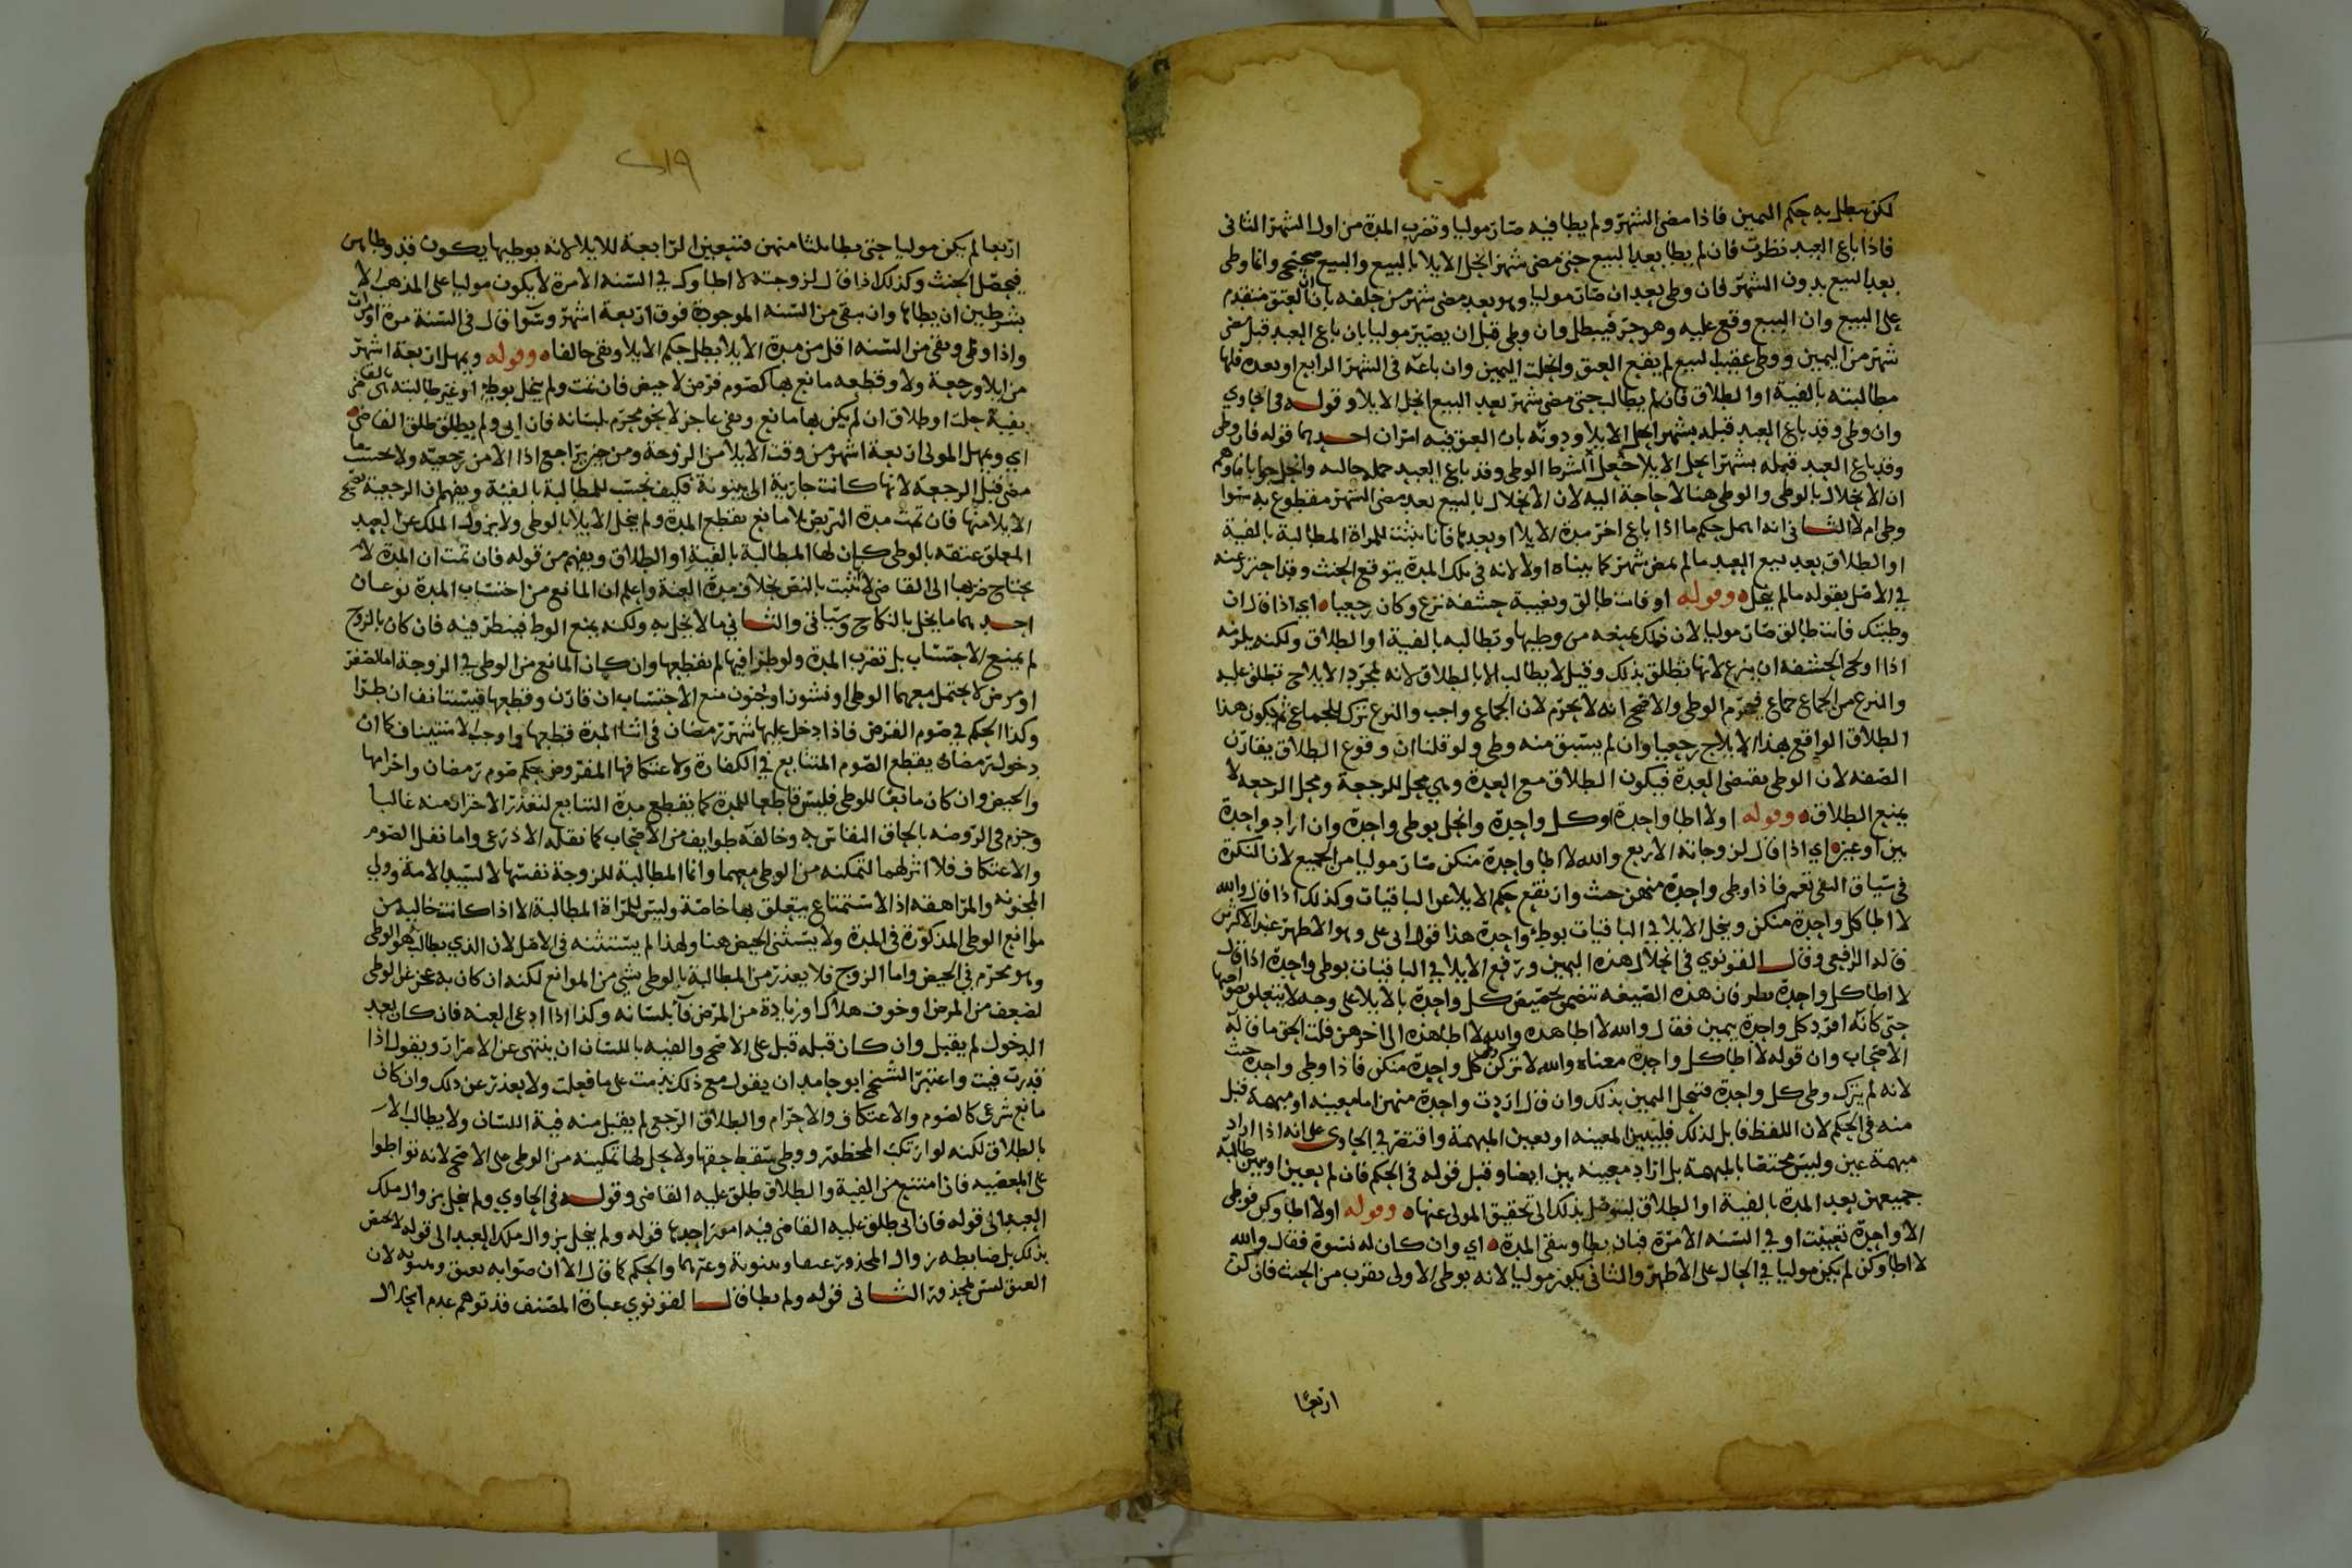 لكن يبطل به حكم اليمين فاذا مضى الشهر ولم يطا فيه صار موليا وتضرب المدة من اول الشهر الثانى
فاذا باع العبد نظرت فان لم يطا بعد البيع حتى مضى شهر انحل الايلا بالبيع والبيع صحيح وانما وطى
بعد البيع بدون الشهر فان وطى بعد ان صار موليا وهو بعد مضى شهر من حلفه بان ان العتق متقدم
على البيع وان البيع وقع عليه وهو حر فيبطل وان وطى قبل ان يصير موليا بان باع العبد قبل مضى
شهر من اليمين ووطى عقيب البيع لم يقع العتق وانحلت اليمين وان باعه فى الشهر الرابع او بعده فلها
مطالبته بالفيئة او الطلاق فان لم يطالب حتى مضى شهر بعد البيع انحل الايلا وقوله فى الحاوي
وان وطى وقد باع العبد قبله بشهر انحل الايلا ودونه بان العتق فيه امران احدهما قوله فان وطى
وقد باع العبد قبله بشهر انحل الايلا جعل الشرط الوطى وقد باع العبد جملة حاليه وانحل جوابا فاوهم
ان الانحلال بالوطى والوطى هنا لا حاجة اليه لان الانحلال بالبيع بعد مضى الشهر مقطوع به سوا
وطى ام لا الثانى انه اهمل حكم ما اذا باع اخر مدة الايلا او بعدها فانا نثبت للمراة المطالبة بالفية
او الطلاق بعد بيع العبد ما لم يمض شهر كما بيناه اولا لانه فى تلك المدة يتوقع الحنث وقد احترز عنه
في الاصل بقوله ما لم ينحل وقوله او فانت طالق وتغيبة حشفه نزع وكان رجعيا اي اذا قال ان
وطيتك فانت طالق صار موليا لان ذلك يمنعه من وطيها وتطالبه بالفية او الطلاق ولكنه يلزمه
اذا اولج الحشفه ان ينزع لانها تطلق بذلك وقيل لا يطالب الا بالطلاق لانه بمجرد الايلاج تطلق عليه
والنزع من الجماع جماع فيحرم الوطى والاصح انه لا يحرم لان الجماع واجب والنزع ترك للجماع ثم يكون هذا
الطلاق الواقع بهذا الايلاج رجعيا وان لم يسبق منه وطى ولو قلنا ان وقوع الطلاق يقارن
الصفه لان الوطى يقتضى العدة فيكون الطلاق مع العدة وهي محل للرجعة ومحل الرجعه لا
يمنع الطلاق وقوله او لا اطا واحدة او كل واحدة وانحل بوطى واحدة وان اراد واحدة
بين او عين اي اذا قال لزوجاته الاربع والله لا اطا واحدة منكن صار موليا من الجميع لان النكرة
فى سياق النفى تعم فاذا وطى واحدة منهن حنث وارتفع حكم الايلا عن الباقيات وكذلك اذا قال والله
لا اطا كل واحدة منكن وينحل الايلا في الباقيات بوطء واحدة هذا قول ابى على وهو الاظهر عند الاكثرين
قاله الرافعى وقال القونوي فى انحلال هذه اليمين ورفع الايلا في الباقيات بوطى واحدة اذا قال
لا اطا كل واحدة نظر فان هذه الصيغه تتضمن تخصيص كل واحدة بالايلا على وجه لا يتعلق بصواحبها
حتى كانه افرد كل واحدة بيمين فقال والله لا اطا هذه والله لا اطا هذه الى اخرهن قلت الحق ما قاله
الاصحاب وان قوله لا اطا كل واحدة معناه والله لا تركن وطى كل واحدة منكن فاذا وطى واحدة حنث
لانه لم يترك وطى كل واحدة فتنحل اليمين بذلك وان قال اردت واحدة منهن اما معينه او مبهمة قبل
منه فى الحكم لان اللفظ قابل لذلك فليبين المعينه او يعين المبهمة واقتصر في الحاوى على انه اذا اراد
مبهمة عين وليس مختصا بالمبهمة بل اذا اراد معينه بين ايضا وقبل قوله فى الحكم فان لم يعين او يبين طالبه
جميعهن بعد المدة بالفية او الطلاق ليتوصل بذلك الى تحقيق المولى عنها وقوله او لا اطاوكن فوطى
الا واحدة تعينت او في السنه الا مرة فبان يطا وبقى المدة اي وان كان له نسوة فقال والله
لا اطاوكن لم يكن موليا في الحال على الاظهر والثانى يكون موليا لانه بوطى الاولى يقرب من الحنث فان كن
اربعا
٢١٩
اربعا لم يكن موليا حتى يطا ثلثا منهن فتتعين الرابعة للايلا لانه بوطيها يكون قد وطاهن
فيحصل الحنث وكذلك اذا قال لزوجته لا اطاوك في السنه الا مرة لا يكون موليا على المذهب الا
بشرطين ان يطاها وان يبقى من السنه الموجودة فوق اربعة اشهر وسوا قال فى السنة مرة او مرات
واذا وطى وبقى من السنه اقل من مدة الايلا بطل حكم الايلا وبقى حالفا وقوله ويمهل اربعة اشهر
من ايلا ورجعة ولا وقطعه مانع بها كصوم فرض لا حيض فان تمت ولم ينحل بوطء او غير طالبته بالقاضى
بفية حلت او طلاق ان لم يكن بها مانع وبقى عاجز لا بنحو محرم بلسانه فان ابى ولم يطلق طلق القاضى
اي ويمهل المولى اربعة اشهر من وقت الايلا من الزوجة ومن حين يراجع اذا الا من رجعيه ولا يحتسب ما
مضى قبل الرجعه لانها كانت جارية الى بينونة فكيف يحتسب للمطالبة بالفيئة ويفهم ان الرجعية يصح
الايلا منها فان تمت مدة التربص بلا مانع يقطع المدة ولم ينحل الايلا بالوطى ولا بزوال الملك عن العبد
المعلق عتقه بالوطى كان لها المطالبة بالفية او الطلاق ويفهم من قوله فان تمت ان المدة لا
يحتاج ضربها الى القاضى لانها تثبت بالنص بخلاف مدة العنة واعلم ان المانع من احتساب المدة نوعان
احدهما ما يخل بالنكاح وسياتى والثانى ما لا يخل به ولكنه يمنع الوطا فينظر فيه فان كان بالزوج
لم يمنع الاحتساب بل تضرب المدة ولو طرا فيها لم يقطعها وان كان المانع من الوطى في الزوجة اما لصغر
او مرض لا يحتمل معهما الوطى او نشوز او جنون منع الاحتساب ان قارن وقطعها فيستانف ان طرا
وكذا الحكم في صوم الفرض فاذا دخل عليها شهر رمضان فى اثنا المدة قطعها واوجب الاستيناف كما ان
دخول رمضان يقطع الصوم المتتابع في الكفارة ولاعتكافها المفروض حكم صوم رمضان واحرامها
والحيض وان كان مانعا للوطى فليس قاطعا للمدة كما يقطع مدة التتابع لتعذر الاحتراز منه غالبا
وجزم فى الروضه بالحاق النفاس به وخالفه طوايف من الاصحاب كما نقله الاذرعى واما نفل الصوم
والاعتكاف فلا اثر لهما لتمكنه من الوطى معهما وانما المطالبة للزوجة نفسها لا لسيد الامة وولي
المجنونه والمراهقه اذ الاستمتاع يتعلق بها خاصة وليس للمراة المطالبة الا اذا كانت خاليه من
موانع الوطى المذكورة فى المدة ولا يستثنى الحيض هنا ولهذا لم يستثنه فى الاصل لان الذي يطالب به هو الوطى
وهو محرم في الحيض واما الزوج فلا يعذر من المطالبة بالوطى بشى من الموانع لكنه ان كان به عجز عن الوطى
لضعف من المرض او خوف هلاك او زيادة من المرض فا بلسانه وكذا اذا ادعى العنه فان كان بعد
الدخول لم يقبل وان كان قبله قبل على الاصح والفيه باللسان ان ينتهى عن الاضرار ويقول اذا
قدرت فيت واعتبر الشيخ ابو حامد ان يقول مع ذلك ندمت على ما فعلت ولا يعذر عن ذلك وان كان
مانع شرعى كالصوم والاعتكاف والاحرام والطلاق الرجعى لم يقبل منه فية اللسان ولا يطالب الا
بالطلاق لكنه لو ارتكب المحظور ووطى سقط حقها ولا يحل لها تمكينه من الوطى على الاصح لانه تواطوا
على المعصيه فاذا امتنع من الفية والطلاق طلق عليه القاضى وقوله فى الحاوي ولم ينحل بزوال ملك
العبد الى قوله فان ابى طلق عليه القاضى فيه امور احدها قوله ولم ينحل بزوال ملك العبد الى قوله لا يختص
بذلك بل ضابطه زوال المحذور عتقا وبينونة وغيرهما والحكم كما قال الا ان صوابه بعتق وبينونه لان
العتق ليس بمحذور الثانى قوله ولم يطا قال القونوي عبارة المصنف قد توهم عدم انحلال